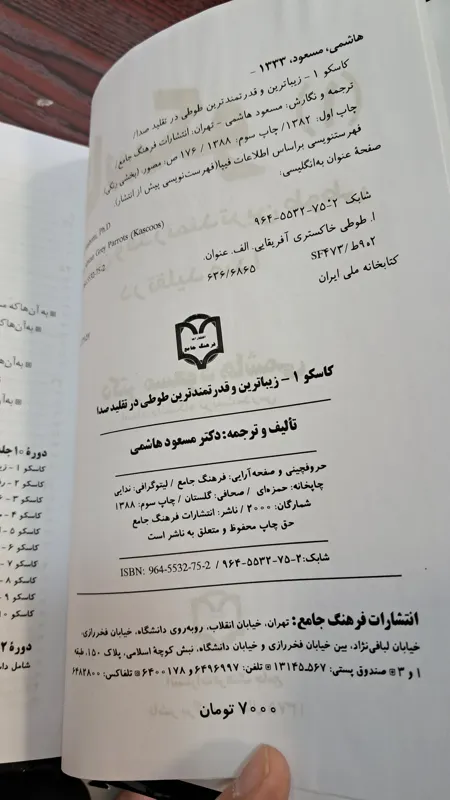 هاشمی، مسعود، ۱۳۳۳ -
کاسکو ۱ - زیباترین و قدرتمندترین طوطی در تقلید صدا/
ترجمه و نگارش: مسعود هاشمی - تهران: انتشارات فرهنگ جامع /
چاپ اول: ۱۳۸۲/ چاپ سوم: ۱۳۸۸ / ۱۷۶ ص: مصور (بخشی رنگی)
فهرستنویسی براساس اطلاعات فیپا(فهرست‌نویسی پیش از انتشار).
صفحهٔ عنوان به‌انگلیسی:
Ph.D
Grey Parrots (Kascoos)
شابک ۲-۷۵-۵۵۳۲-۹۶۴
ا. طوطی خاکستری آفریقایی. الف. عنوان.
۹۰۲ط/SF۴۷۳
۶۳۶/۶۸۶۵
کتابخانه ملی ایران
فرهنگ جامع
کاسکو ۱ - زیباترین و قدرتمندترین طوطی در تقلید صدا
تألیف و ترجمه: دکتر مسعود هاشمی
حروفچینی و صفحه‌آرایی: فرهنگ جامع / لیتوگرافی: ندایی
چاپخانه: حمزه‌ای / صحافی: گلستان / چاپ سوم: ۱۳۸۸
شمارگان: ۲۰۰۰ / ناشر: انتشارات فرهنگ جامع
حق چاپ محفوظ و متعلق به ناشر است
شابک: ۲-۷۵-۵۵۳۲-۹۶۴ / ISBN: 964-5532-75-2
انتشارات فرهنگ جامع: تهران، خیابان انقلاب، روبه‌روی دانشگاه، خیابان فخررازی،
خیابان لبافی‌نژاد، بین خیابان فخررازی و خیابان دانشگاه، نبش کوچهٔ اسلامی، پلاک ۱۵۰، طبقه
۱ و ۳ ▣ صندوق پستی: ۵۶۷-۱۳۱۴۵ ▣ تلفن: ۶۴۹۶۹۹۷ و ۶۴۰۰۱۷۸ ▣ تلفاکس: ۶۴۸۲۸۰۰
۷۰۰۰ تومان
به آن‌ها که
به آن‌ها
به آن‌ها
دورهٔ ۱۰ جلد
کاسکو ۱ -
کاسکو ۲ -
کاسکو ۳ -
کاسکو ۴ -
کاسکو ۵ -
کاسکو ۶ -
کاسکو ۷ -
کاسکو ۸ -
کاسکو ۹ -
کاسکو ۱۰
دورهٔ ۲
شامل